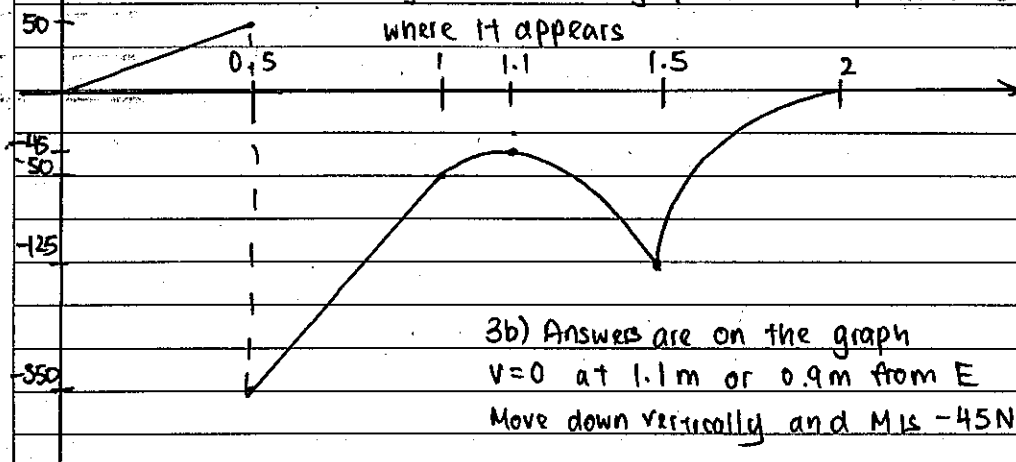 50
where it appears
0.5 1 1.1 1.5 2
-45
-50
-125
-350
3b) Answers are on the graph
V=0 at 1.1m or 0.9m from E
Move down vertically and M is -45N